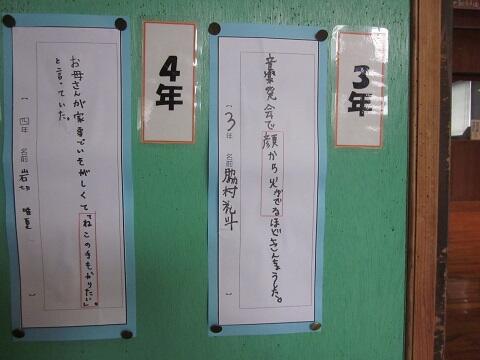 3年
音楽発会で顔から火がでるほどきんちょうした。
(3年 名前 脇村礼斗)
4年
お母さんが家事でいそがしくて「ねこの手もかりたい」。
と言っていた。
(四年 名前 岩切 唯夏)